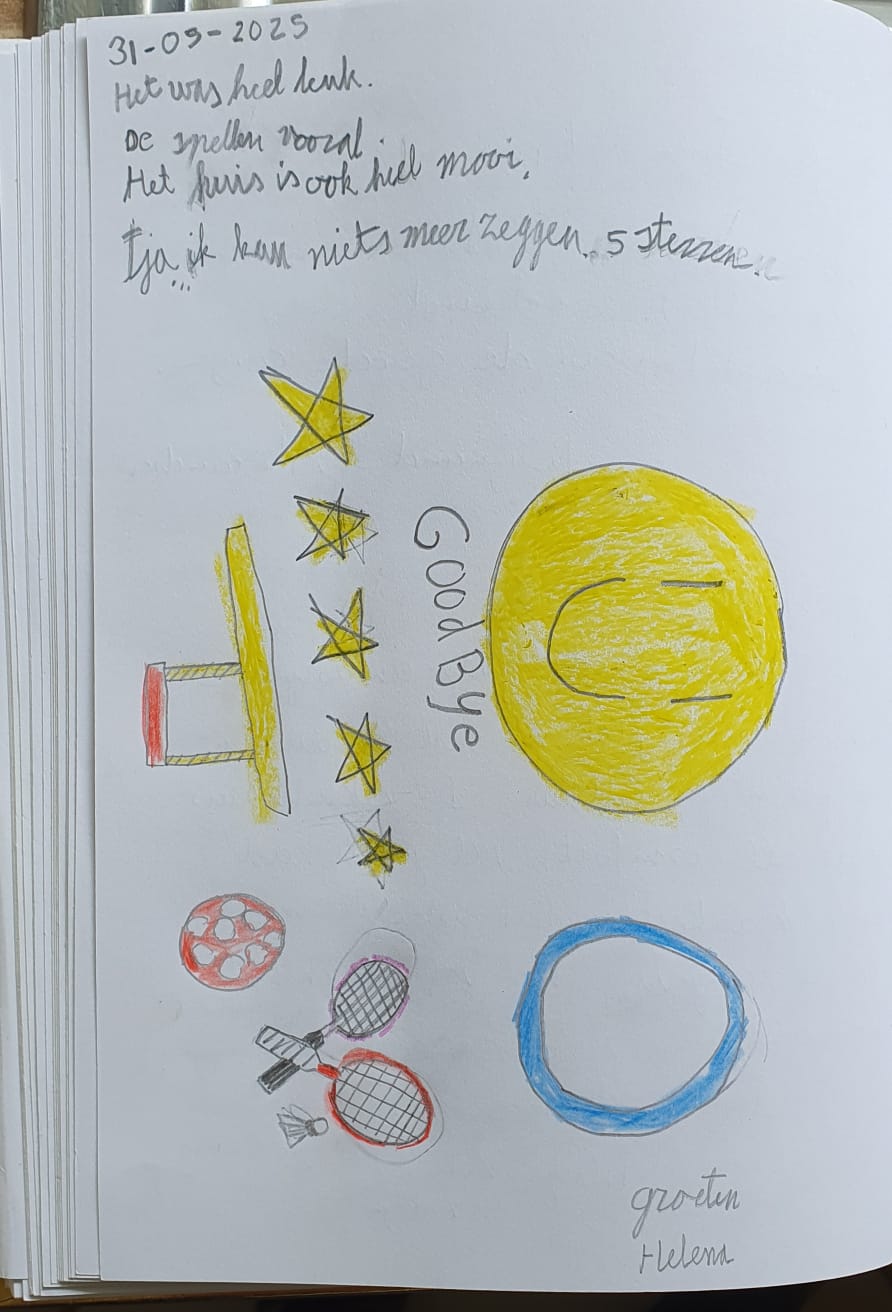 31-05-2025
Het was heel leuk.
De spellen vooral.
Het huis is ook heel mooi.
Tja ik kan niets meer zeggen... 5 sterren
Good Bye
groeten
Helena